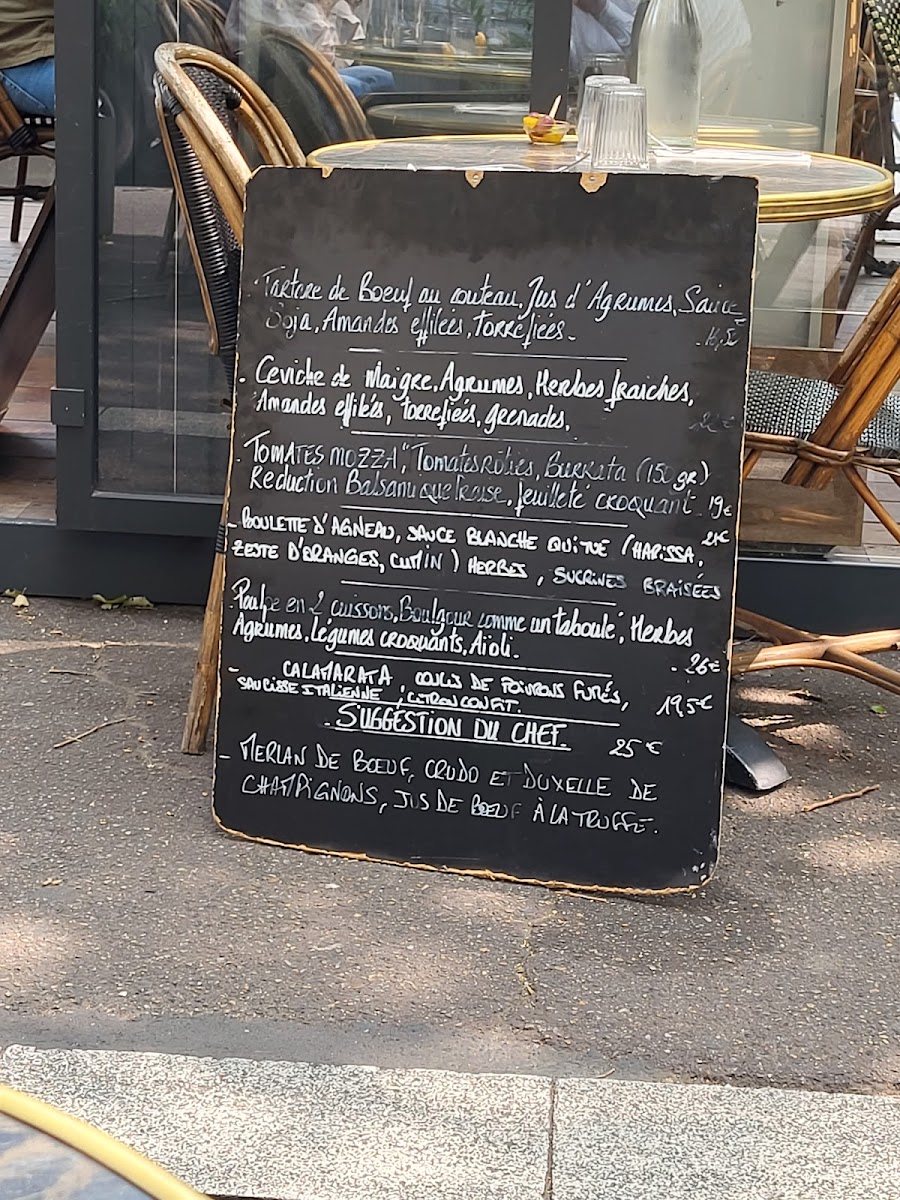 - Tartare de Boeuf au couteau, Jus d'Agrumes, Sauce
Soja, Amandes effilées, Torréfiées.
- Ceviche de Maigre, Agrumes, Herbes fraiches,
Amandes effilés, torrefiées, grenades.
- "TOMATES MOZZA", Tomates Rôties, Burrata (150 gr)
Reduction Balsamique fraise, feuilleté croquant 19€
- BOULETTE D'AGNEAU, SAUCE BLANCHE (HARISSA, 21€
ZESTE D'ORANGES, CUMIN) HERBES, SUCRINES BRAISÉES
Poulpe en 2 cuissons, Boulgour comme un taboulé, Herbes
Agrumes, Légumes croquants, Aïoli. - 26€
- CALAMARATA, COULIS DE POIVRONS FUMÉS,
SAUCISSE ITALIENNE, CITRON CONFIT. 19,5€
SUGGESTION DU CHEF. 25€
- MERLAN DE BOEUF, CRUDO ET DUXELLE DE
CHAMPIGNONS, JUS DE BOEUF À LA TRUFFE.